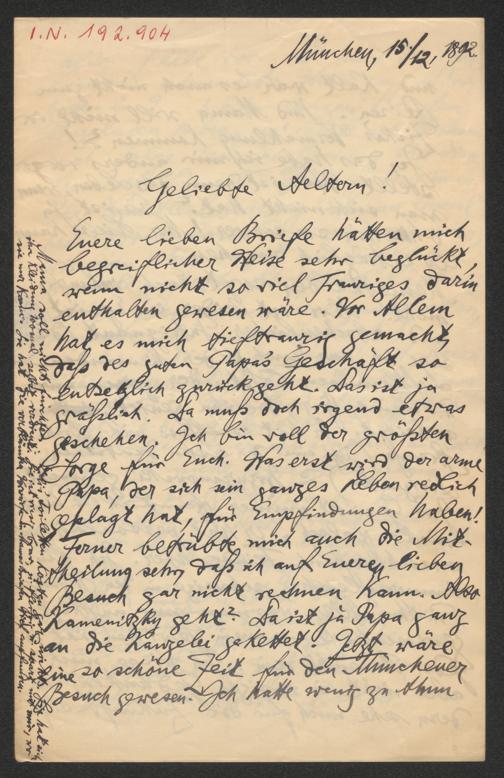 I.N. 192.904
München, 15/12, 1892
Geliebte Aeltern!
Euere lieben Briefe hätten mich
begreiflicher Weise sehr beglückt,
wenn nicht so viel Trauriges darin
enthalten gewesen wäre. Vor Allem
hat es mich tieftraurig gemacht,
daß des guten Papa's Geschäft so
entsetzlich zurückgeht. Das ist ja
gräßlich. Da muß doch irgend etwas
geschehen. Ich bin voll der größten
Sorge für Euch. Was erst wird der arme
Papa, der sich sein ganzes Leben redlich
geplagt hat, für Empfindungen haben!
Ferner betrübte mich auch die Mit-
theilung sehr, daß ich auf Eueren lieben
Besuch gar nicht rechnen kann. Also
Kamenitzky geht? Da ist ja Papa ganz
an die Kanzelei gekettet. Jetzt wäre
eine so schöne Zeit für den Münchener
Besuch gewesen. Ich hatte wenig zu thun
Mama soll nicht